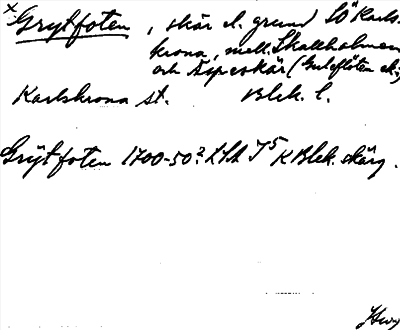 x Grytfoten, skär el. grund SÖ Karls-
krona, mell. Skallholmen
och Äspeskär (
Karlskrona st. Blek. l.
Grytfoten 1700-50? LSA I5 K Blek. skärg.